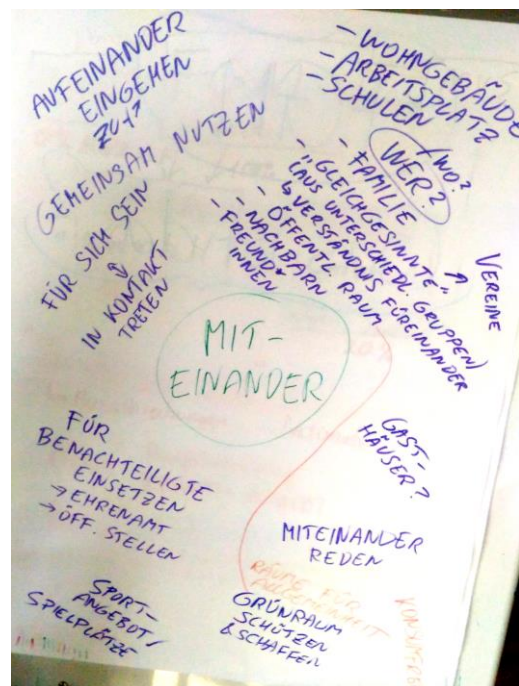 AUFEINANDER
EINGEHEN
ZU1?
GEMEINSAM NUTZEN
FÜR SICH SEIN
IN KONTAKT
TRETEN
- WOHNGEBÄUDE
- ARBEITSPLATZ
- SCHULEN
WER? / WO?
- FAMILIE
- "GLEICHGESINNTE"
(AUS UNTERSCHIEDL. GRUPPEN)
↳ VERSTÄNDNIS FÜREINANDER
- ÖFFENTL. RAUM
- NACHBARN
- FREUND*
INNEN
VEREINE
MIT-
EINANDER
GAST-
HÄUSER?
FÜR
BENACHTEILIGTE
EINSETZEN
→ EHRENAMT
→ ÖFF. STELLEN
MITEINANDER
REDEN
RÄUME FÜR
ALLGEMEINHEIT
SPORT-
ANGEBOT/
SPIELPLÄTZE
GRÜNRAUM
SCHÜTZEN
& SCHAFFEN